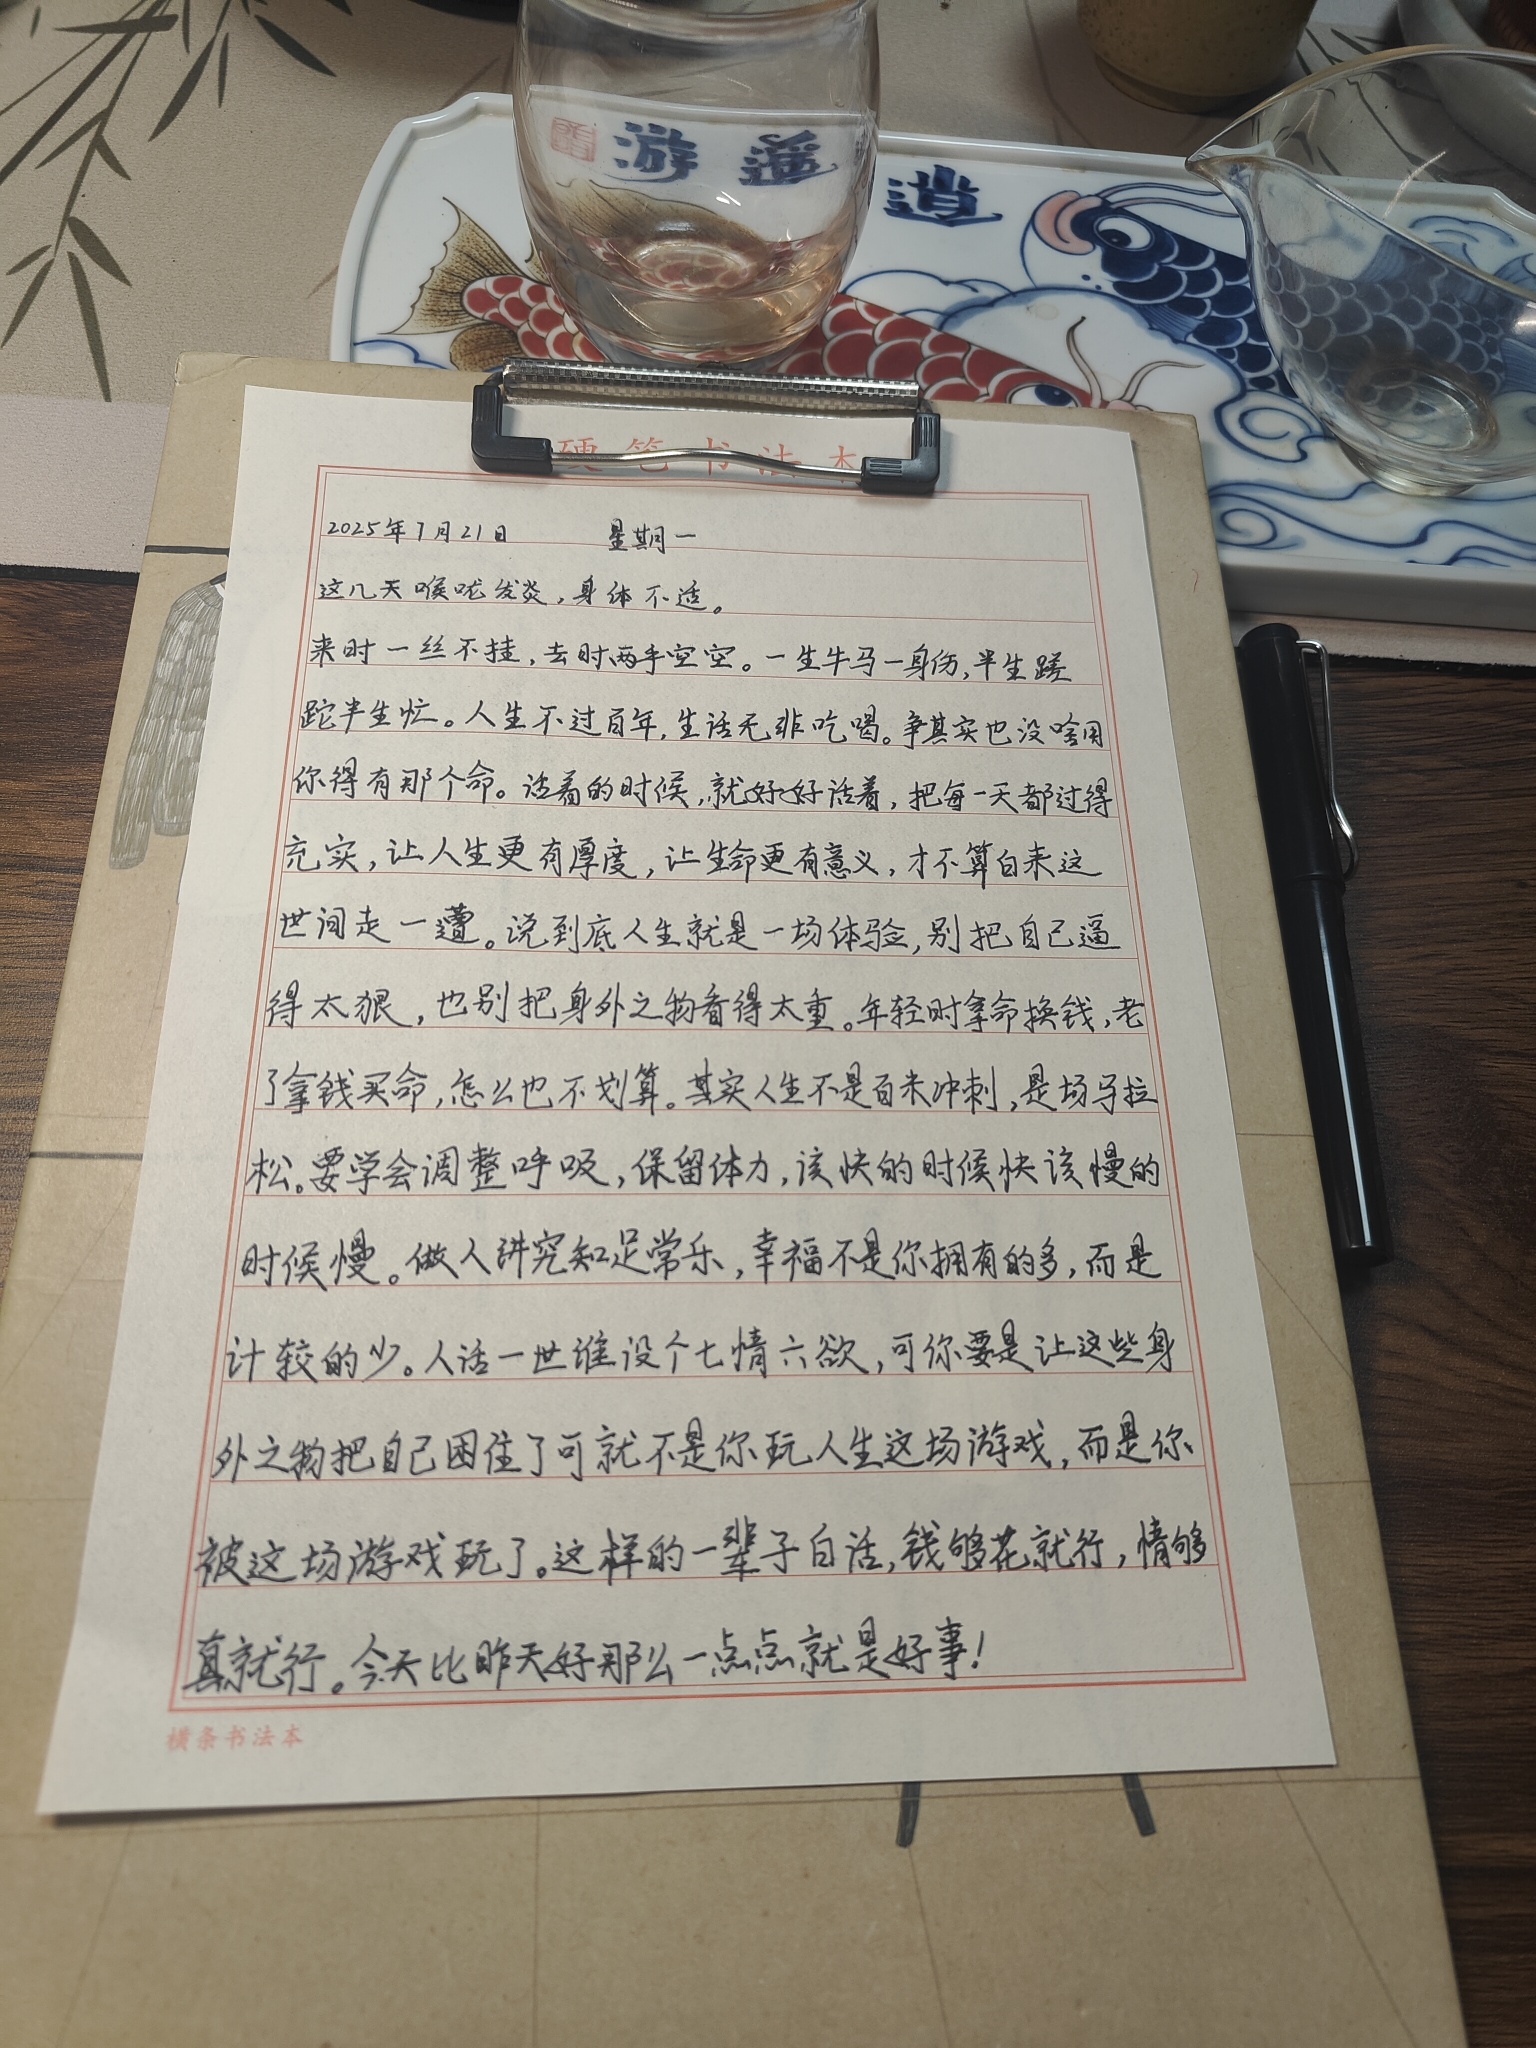 逍遥游
硬笔书法本
2025年7月21日 星期一
这几天喉咙发炎，身体不适。
来时一丝不挂，去时两手空空。一生牛马一身伤，半生蹉
跎半生忙。人生不过百年，生活无非吃喝。争其实也没啥用
你得有那个命。活着的时候，就好好活着，把每一天都过得
充实，让人生更有厚度，让生命更有意义，才不算白来这
世间走一遭。说到底人生就是一场体验，别把自己逼
得太狠，也别把身外之物看得太重。年轻时拿命换钱，老
了拿钱买命，怎么也不划算。其实人生不是百米冲刺，是场马拉
松。要学会调整呼吸，保留体力，该快的时候快该慢的
时候慢。做人讲究知足常乐，幸福不是你拥有的多，而是
计较的少。人活一世谁没个七情六欲，可你要是让这些身
外之物把自己困住了可就不是你玩人生这场游戏，而是你
被这场游戏玩了。这样的一辈子白活，钱够花就行，情够
真就行。今天比昨天好那么一点点就是好事！
横条书法本